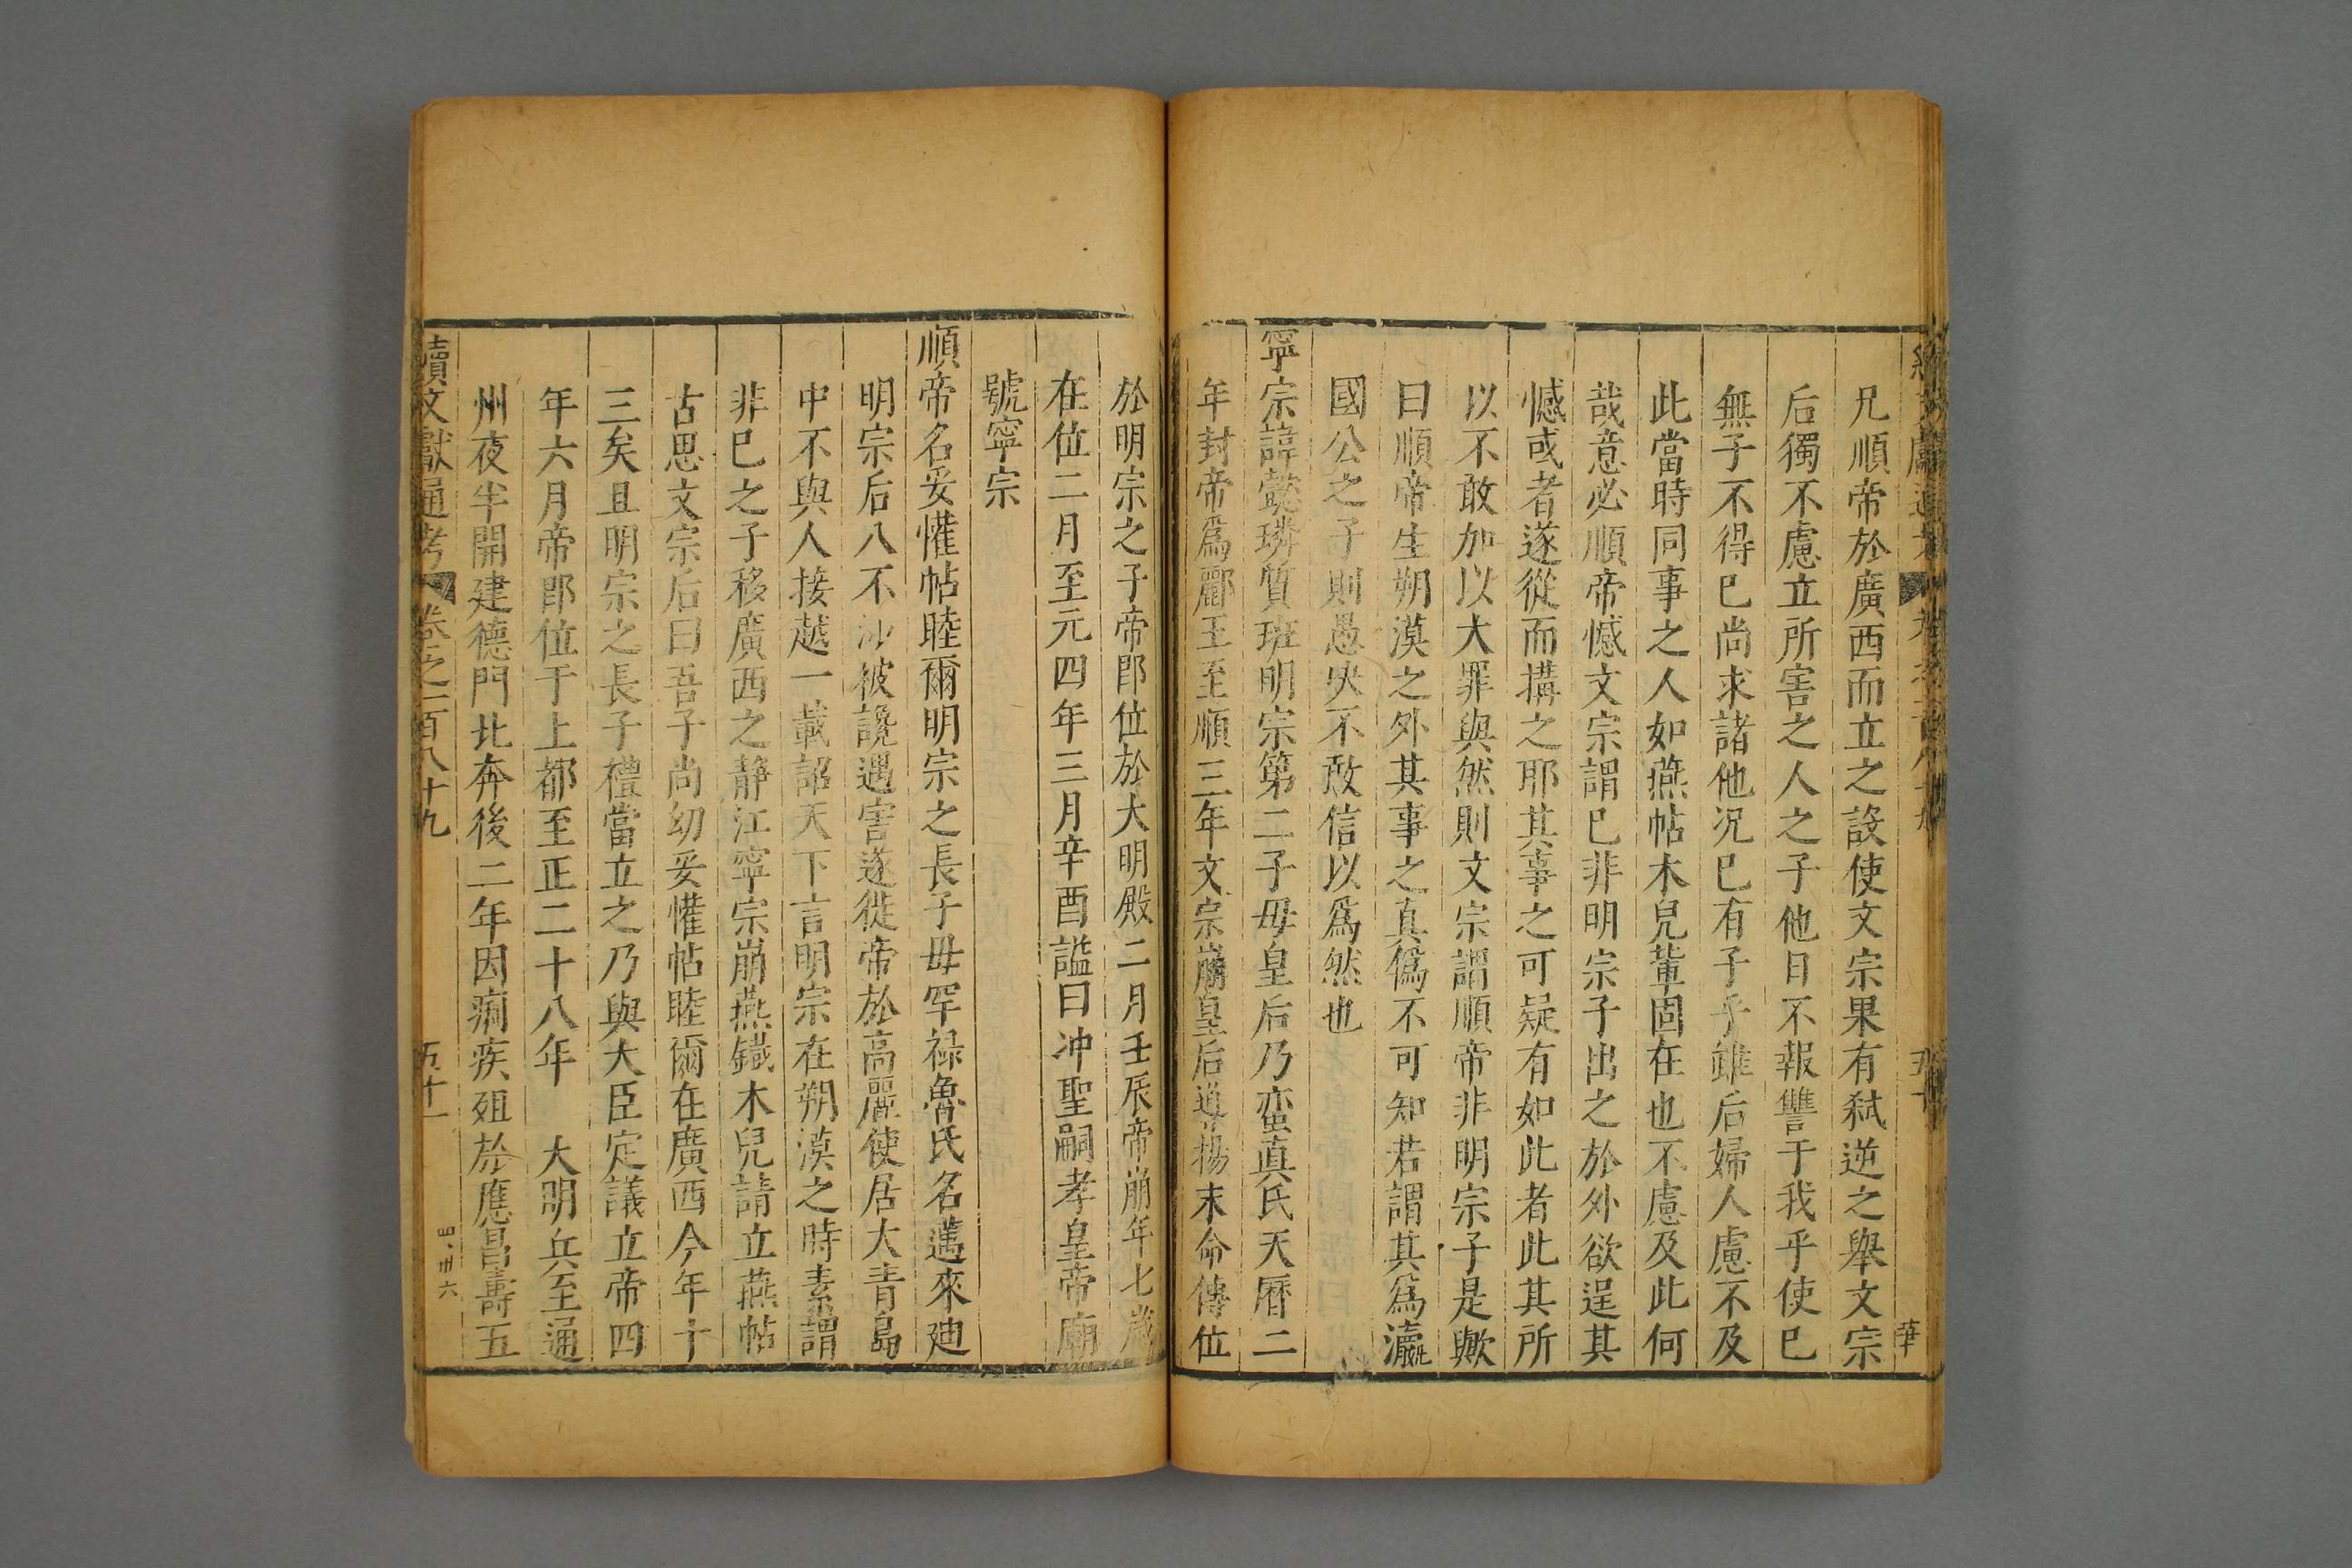 凡順帝於廣西而立之設使文宗果有弑逆之舉文宗
后獨不慮立所害之人之子他日不報讐于我乎使巳
無子不得巳尚求諸他况巳有子乎雖后婦人慮不及
此當時同事之人如燕帖木兒輩固在也不慮及此何
哉意必順帝憾文宗謂巳非明宗子出之於外欲逞其
憾或者遂從而搆之耶其事之可疑有如此者此其所
以不敢加以大罪與然則文宗謂順帝非明宗子是歟
曰順帝生朔漠之外其事之真僞不可知若謂其爲瀛
國公之子則愚決不敢信以爲然也
寧宗諱懿璘質班明宗第二子毋皇后乃蛮真氏天曆二
年封帝爲鄜王至順三年文宗崩皇后導揚末命傳位
於明宗之子帝即位於大明殿二月壬辰帝崩年七歲
在位二月至元四年三月辛酉謚曰冲聖嗣孝皇帝廟
號寧宗
順帝名妥懽帖睦爾明宗之長子毋罕禄魯氏名邁來廸
明宗后八不沙被讒遇害遂徙帝於高麗使居大青島
中不與人接越一載詔天下言明宗在朔漠之時素謂
非巳之子移廣西之静江寧宗崩燕鐵木兒請立燕帖
古思文宗后曰吾子尚幼妥懽帖睦爾在廣西今年十
三矣且明宗之長子禮當立之乃與大臣定議立帝四
年六月帝即位于上都至正二十八年 大明兵至通
州夜半開建德門北奔後二年因痢疾殂於應昌壽五
續文獻通考 卷之一百八十九 五十一